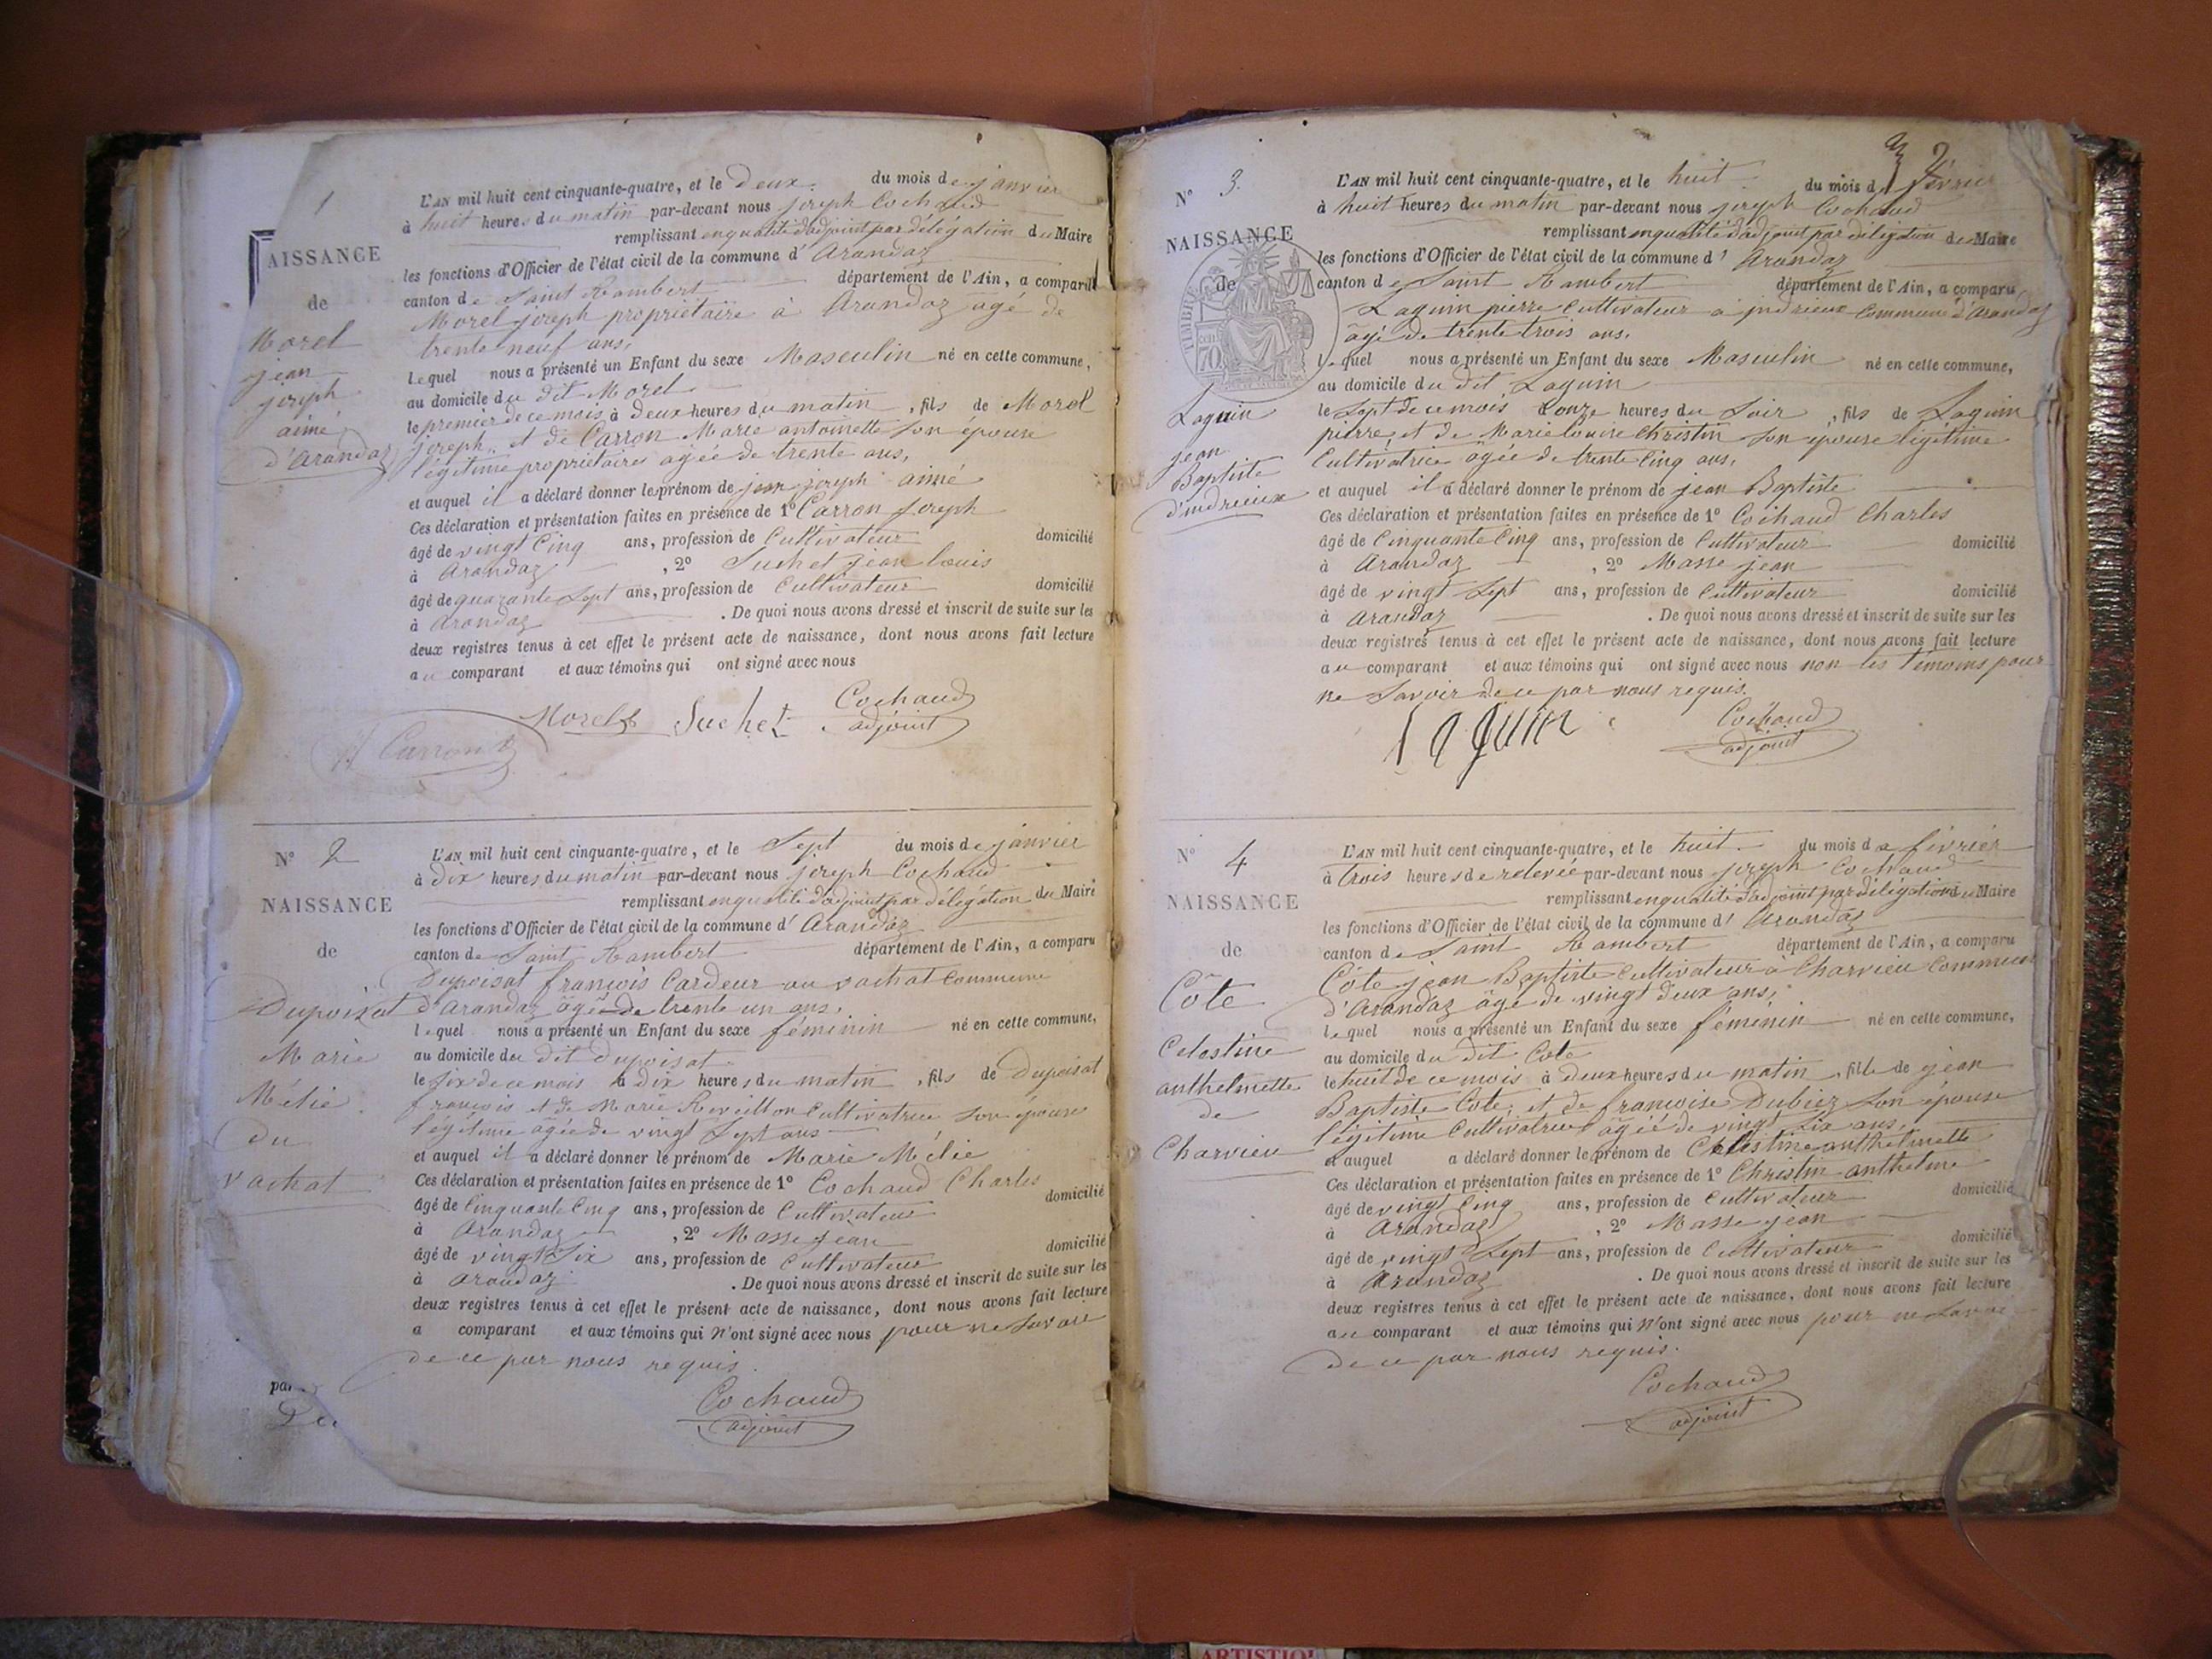 1
AISSANCE
de
Morel
jean
joseph
aimé
d'arandaz
L'AN mil huit cent cinquante-quatre, et le deux du mois de janvier
à huit heures du matin par-devant nous joseph Cochaud
remplissant en qualité d'adjoint par délégation du Maire
les fonctions d'Officier de l'état civil de la commune d'Arandaz
canton de Saint Rambert département de l'Ain, a comparu
Morel joseph propriétaire à Arandaz agé de
trente neuf ans,
lequel nous a présenté un Enfant du sexe Masculin né en cette commune,
au domicile du dit Morel
le premier de ce mois à deux heures du matin, fils de Morel
joseph, et de Carron Marie antoinette son épouse
légitime propriétaires agée de trente ans,
et auquel il a déclaré donner les prénom de jean joseph aimé
Ces déclaration et présentation faites en présence de 1° Carron joseph
âgé de vingt Cinq ans, profession de Cultivateur domicilié
à Arandaz, 2° Suchet jean louis
âgé de quarante sept ans, profession de Cultivateur domicilié
à Arandaz. De quoi nous avons dressé et inscrit de suite sur les
deux registres tenus à cet effet le présent acte de naissance, dont nous avons fait lecture
au comparant et aux témoins qui ont signé avec nous
Morel Suchet Cochaud
adjoint
Carron
N° 2
NAISSANCE
de
Dupoizat
Marie
Mélie
du
vachat
L'AN mil huit cent cinquante-quatre, et le Sept du mois de janvier
à dix heures du matin par-devant nous joseph Cochaud
remplissant en qualité d'adjoint par délégation du Maire
les fonctions d'Officier de l'état civil de la commune d'Arandaz
canton de Saint Rambert département de l'Ain, a comparu
Dupoisat françois Cardeur au vachat Commune
d'Arandaz âgé de trente un ans,
lequel nous a présenté un Enfant du sexe féminin né en cette commune,
au domicile du dit dupoisat
le six de ce mois à dix heures du matin, fils de Dupoisat
françois et de Marie Reveillon Cultivatrice son épouse
légitime agée de vingt sept ans
et auquel il a déclaré donner le prénom de Marie Mélie
Ces déclaration et présentation faites en présence de 1° Cochaud Charles
âgé de Cinquante Cinq ans, profession de Cultivateur domicilié
à Arandaz, 2° Masse jean
âgé de vingt Six ans, profession de Cultivateur domicilié
à arandaz. De quoi nous avons dressé et inscrit de suite sur les
deux registres tenus à cet effet le présent acte de naissance, dont nous avons fait lecture
a comparant et aux témoins qui n'ont signé avec nous pour ne savoir
de ce par nous requis.
Cochaud
adjoint
2
N° 3
NAISSANCE
de
TIMBRE
70
Laguin
jean
Baptiste
d'indrieux
L'AN mil huit cent cinquante-quatre, et le huit du mois d février
à huit heures du matin par-devant nous joseph Cochaud
remplissant en qualité d'adjoint par délégation du Maire
les fonctions d'Officier de l'état civil de la commune d'Arandaz
canton de Saint Rambert département de l'Ain, a comparu
Laguin pierre Cultivateur à indrieux Commune d'Arandaz
âgé de trente trois ans,
lequel nous a présenté un Enfant du sexe Masculin né en cette commune,
au domicile du dit Laguin
le Sept de ce mois à onze heures du Soir, fils de Laguin
pierre, et de Marie louise Christin son épouse légitime
Cultivatrice âgée de trente Cinq ans,
et auquel il a déclaré donner le prénom de jean Baptiste
Ces déclaration et présentation faites en présence de 1° Cochaud Charles
âgé de Cinquante Cinq ans, profession de Cultivateur domicilié
à Arandaz, 2° Masse jean
âgé de vingt Sept ans, profession de Cultivateur domicilié
à Arandaz. De quoi nous avons dressé et inscrit de suite sur les
deux registres tenus à cet effet le présent acte de naissance, dont nous avons fait lecture
au comparant et aux témoins qui ont signé avec nous non les témoins pour
ne Savoir de ce par nous requis.
laguin Cochaud
adjoint
N° 4
NAISSANCE
de
Côte
Celestine
anthelmette
de
Charvieu
L'AN mil huit cent cinquante-quatre, et le huit du mois de février
à trois heures de relevée par-devant nous joseph Cochaud
remplissant en qualité d'adjoint par délégation du Maire
les fonctions d'Officier de l'état civil de la commune d'Arandaz
canton de Saint Rambert département de l'Ain, a comparu
Côte jean Baptiste Cultivateur à Charvieu Commune
d'Arandaz âgé de vingt deux ans,
lequel nous a présenté un Enfant du sexe féminin né en cette commune,
au domicile du dit Cote
le huit de ce mois à deux heures du matin, fille de jean
Baptiste Cote, et de françoise Dubiez son épouse
légitime Cultivatrice agée de vingt six ans,
et auquel a déclaré donner le prénom de Celestine anthelmette
Ces déclaration et présentation faites en présence de 1° Christin anthelme
âgé de vingt Cinq ans, profession de Cultivateur domicilié
à Arandaz, 2° Masse jean
âgé de vingt Sept ans, profession de Cultivateur domicilié
à Arandaz. De quoi nous avons dressé et inscrit de suite sur les
deux registres tenus à cet effet le présent acte de naissance, dont nous avons fait lecture
au comparant et aux témoins qui n'ont signé avec nous pour ne savoir
de ce par nous requis.
Cochaud
adjoint